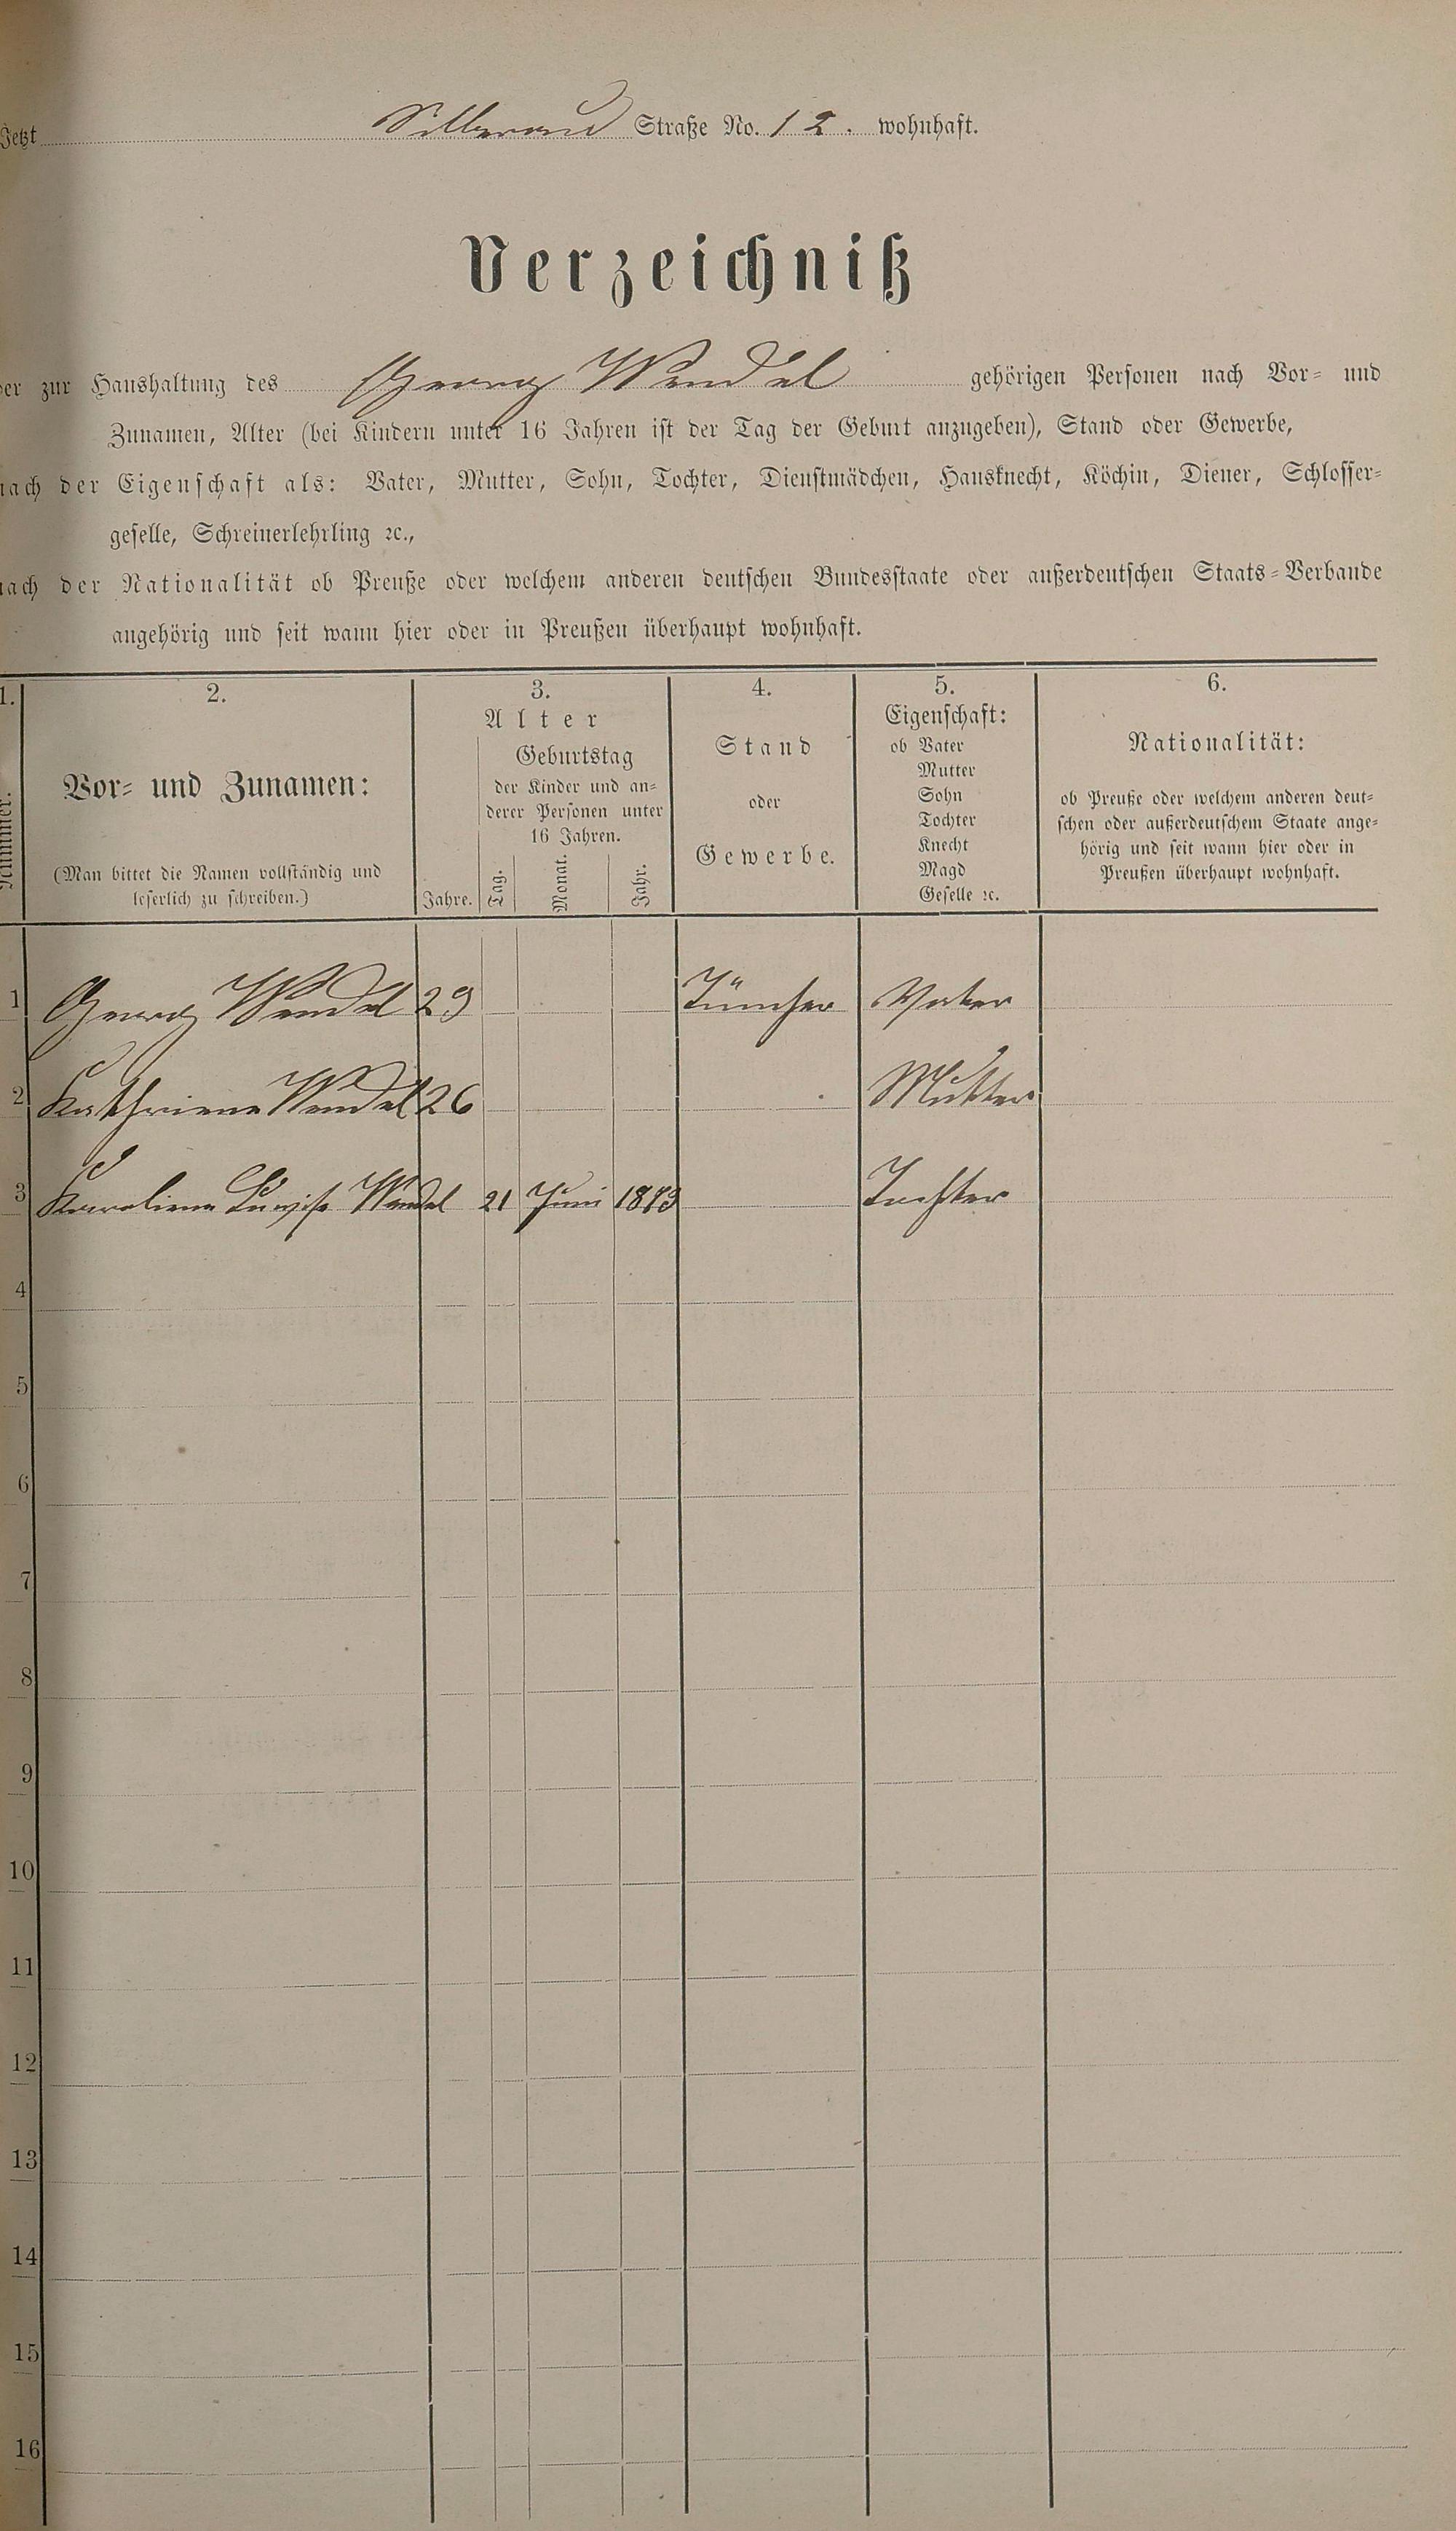 Jetzt Straße No. 12. wohnhaft.
Verzeichniß
der zur Haushaltung des Georg Wendel gehörigen Personen nach Vor- und
Zunamen, Alter (bei Kindern unter 16 Jahren ist der Tag der Geburt anzugeben), Stand oder Gewerbe,
nach der Eigenschaft als: Vater, Mutter, Sohn, Tochter, Dienstmädchen, Hausknecht, Köchin, Diener, Schlosser-
geselle, Schreinerlehrling ꝛc.,
nach der Nationalität ob Preuße oder welchem anderen deutschen Bundesstaate oder außerdeutschen Staats-Verbande
angehörig und seit wann hier oder in Preußen überhaupt wohnhaft.
1. 2. 3. 4. 5. 6.
Nummer.
Vor- und Zunamen:
(Man bittet die Namen vollständig und
leserlich zu schreiben.)
Alter
Geburtstag
der Kinder und an-
derer Personen unter
16 Jahren.
Jahre. Tag. Monat. Jahr.
Stand
oder
Gewerbe.
Eigenschaft:
ob Vater
Mutter
Sohn
Tochter
Knecht
Magd
Geselle ꝛc.
Nationalität:
ob Preuße oder welchem anderen deut-
schen oder außerdeutschem Staate ange-
hörig und seit wann hier oder in
Preußen überhaupt wohnhaft.
1 Georg Wendel 29 Tüncher Vater
2 Kathriene Wendel 26 Mutter
3 Karoliene Luwise Wendel 21 Juni 1873 Tochter
4
5
6
7
8
9
10
11
12
13
14
15
16